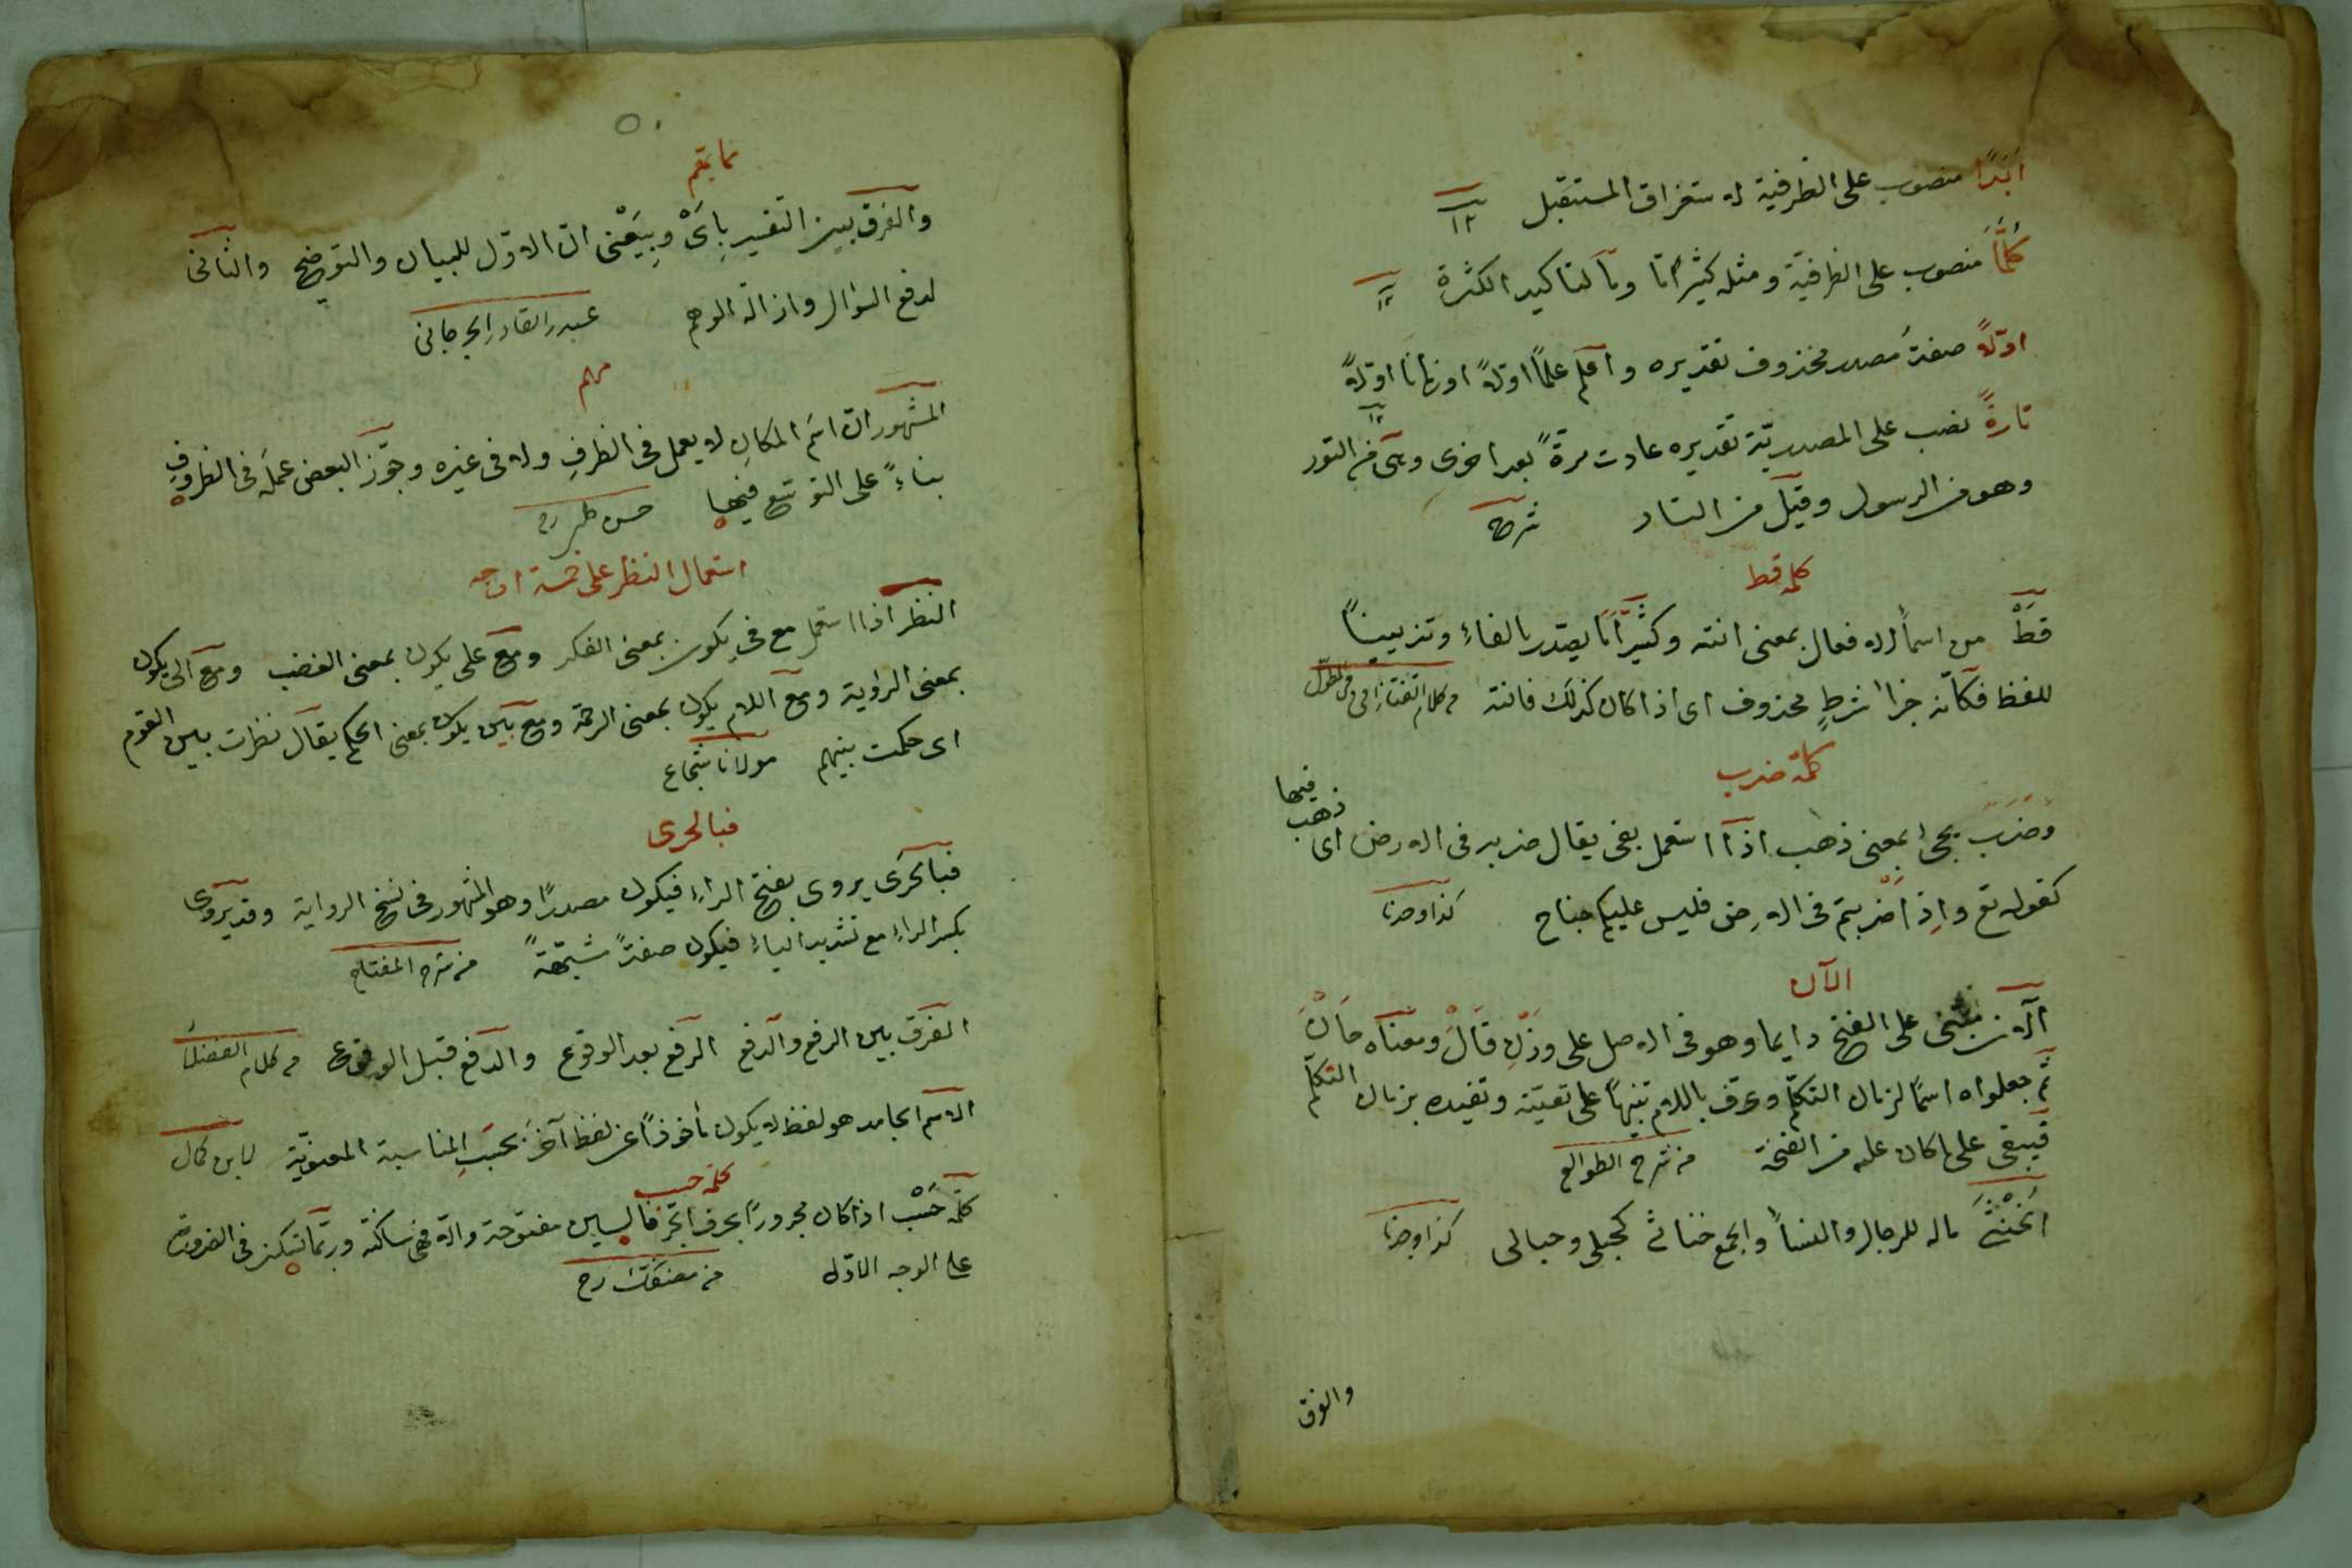 أبدًا منصوب على الظرفية لاستغراق المستقبل ١٢
كلمّا منصوب على الظرفيّة ومثله كثيرًا ما وما لتأكيد الكثرة ١٢
اوّلاً صفة مصدر محذوف تقديره واعلم علمًا اوّلاً او زمانا اوّلاً ١٢
تارةً نصب على المصدريّة تقديره عادت مرةً بعد اخرى وهى من التور
وهو من الرسول وقيل من التار شرح
كلمه قط
قطْ من اسماء الافعال بمعنى انته وكثيرًا ما يصدّر بالفاء وتزيينًا
للفظ فكأنه جزاء شرطٍ محذوف اى اذا كان كذلك فانته من كلام التفتازانى فى المطوّل
كلمة ضرب
وضَرَبَ يجئ بمعنى ذهب اذا استعمل بفى يقال ضرب فى الارض اى ذهب فيها
كقوله تع واِذا ضربتم فى الارض فليس عليكم جناح كذا وجدنا
الآن
الآن مبنى على الفتح دايما وهو فى الاصل على وزن قَالَ ومعناه حَانَ
ثمّ جعلواه اسمًا لزمان التكلّم وعرّف باللام تنبيهًا على تعيّنه وتقيده بزمان التكلّم
فيبقى على ما كان عليه من الفتحة من شرح الطوالع
الخُنْثَى ماله للرجال والنساء والجمع خناثى كحبلى وحبالى كذا وجدنا
والفرق
٥٠
والفرق بين التفسير بِاَىْ وبِيَعْنى انّ الاوّل للبيان والتوضيح والثانى
لدفع السؤال وازالة الوهم عبد القادر الجرجانى
مهم
المشهور انّ اسم المكان لا يعمل فى الظرفِ ولا فى غيره وجوّز البعض عمَلَه فى الظروفِ
بناءً على التوسّع فيها حسن چلبى ره
استعمال النظر على خمسة اوجه
النظر اذا استعمل مع فى يكون بمعنى الفكر ومع على يكون بمعنى الغضب ومع الى يكون
بمعنى الرؤاية ومع اللام يكون بمعنى الرحمة ومع بين يكون بمعنى الحكم يقال نظرت بين القوم
اى حكمت بينهم مولانا شجاع
فبالحرى
فبالحرَى يروى بفتح الراء فيكون مصدرًا وهو المشهور فى نسخ الرواية وقد يروى
بكسر الراء مع تشديد الياء فيكون صفةً مشبّهةً من شرح المفتاح
الفرق بين الرفع والدفع الرفع بعد الوقوع والدفع قبل الوقوع من كلام الفضلاء
الاسم الجامد هو لفظ لا يكون مأخوذًا عن لفظ آخر بحسَبِ المناسبة المعنويّة لابن كمال
كلمه حسب
كلمه حَسْب اذا كان مجرورًا بحرف الجرّ فالسين مفتوحة والّا فهى ساكنة وربّما تسكن فى الضرورة
على الوجه الاوّل من مصنفك رح